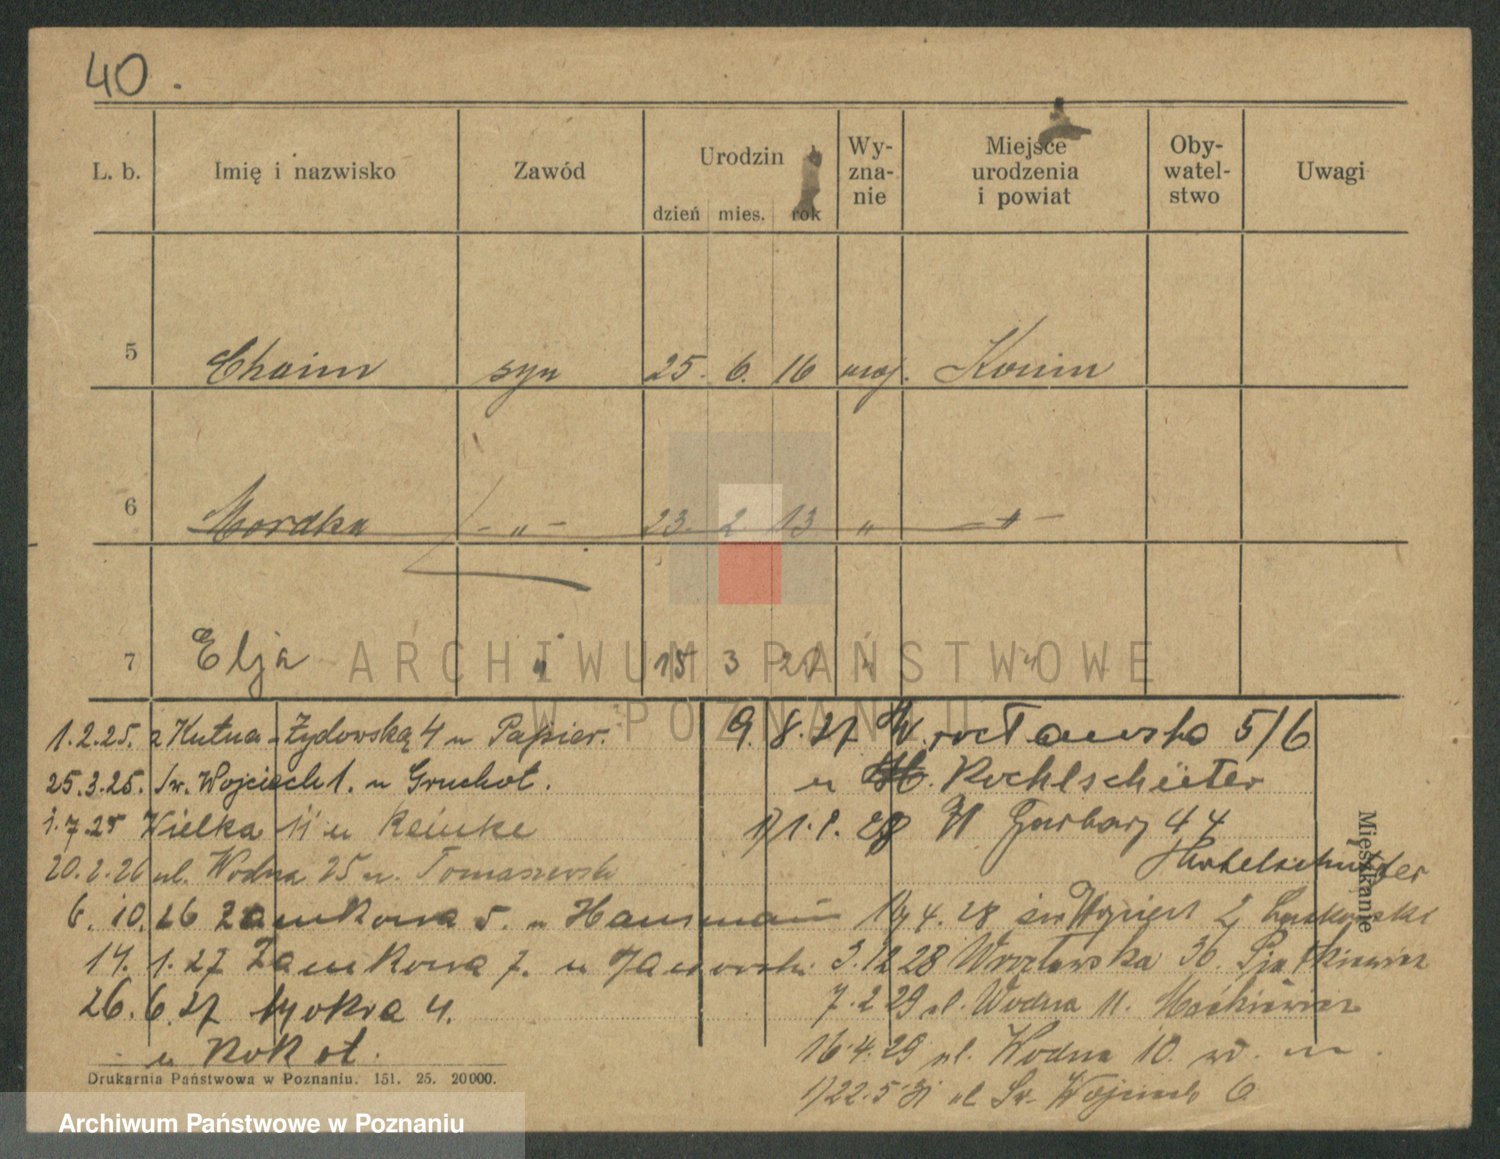 40.
L. b. Imię i nazwisko Zawód Urodzin dzień mies. rok Wy-zna-nie Miejsce urodzenia i powiat Oby-watel-stwo Uwagi
5 Chaim syn 25. 6. 16 moj. Konin
6 Mordka - " - 23. 2. 13 " - " -
7 Elja " 15 3 21 " "
ARCHIWUM PAŃSTWOWE
W POZNANIU
1.2.25. z Kutna - Żydowską 4 u Papier.
25.3.25. św. Wojciech 1. u Gruchot.
1.7.25 Wielka 11 u Reinke
20.2.26 ul. Wodna 25 u. Tomaszewski
6. 10. 26 Zamkowa 5. u Hausmann
14. 1. 27 Zamkowa 7. u Janowski.
26. 6. 27 Mokra 4.
u Rokot.
9. 8. 27 Wrocławska 5/6
u Kochlschütter
1.2.28 W Garbary 44
4. 28 św Wojciech 2
3.12 28 Wrocławska 36. Piątkiewicz
7.2.29 ul. Wodna 11. Maćkiewicz
16.4.29 ul. Wodna 10.
22.5.31 ul Św. Wojciech 6
Mieszkanie
Drukarnia Państwowa w Poznaniu. 151. 25. 20000.
Archiwum Państwowe w Poznaniu